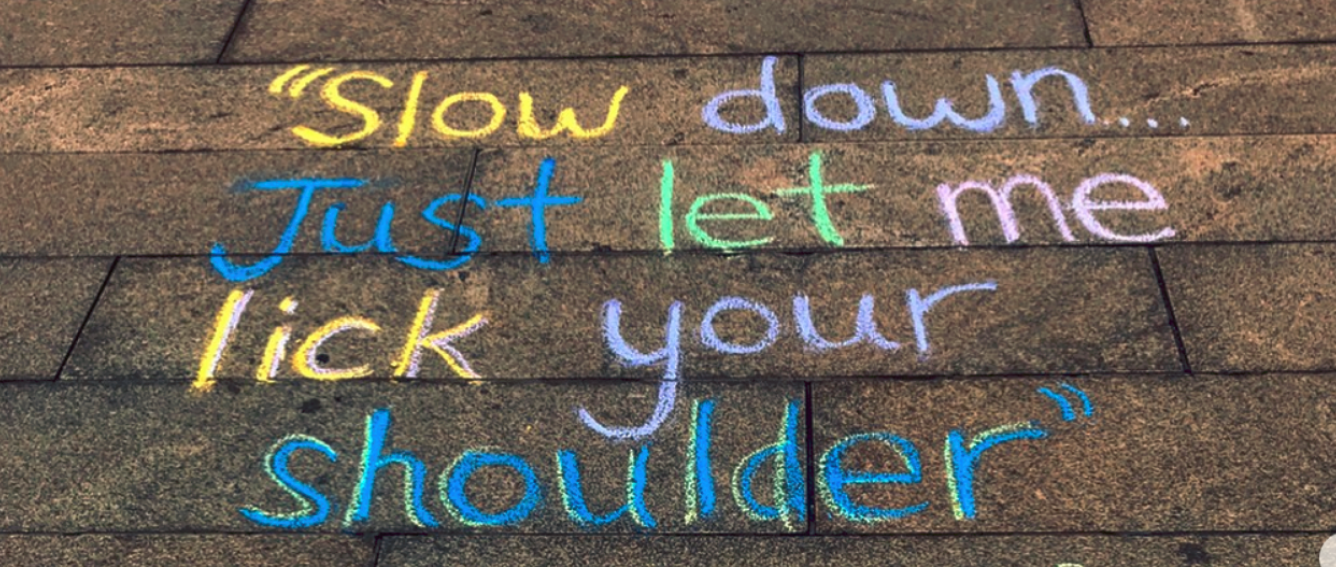 “Slow down...
Just let me
lick your
shoulder”